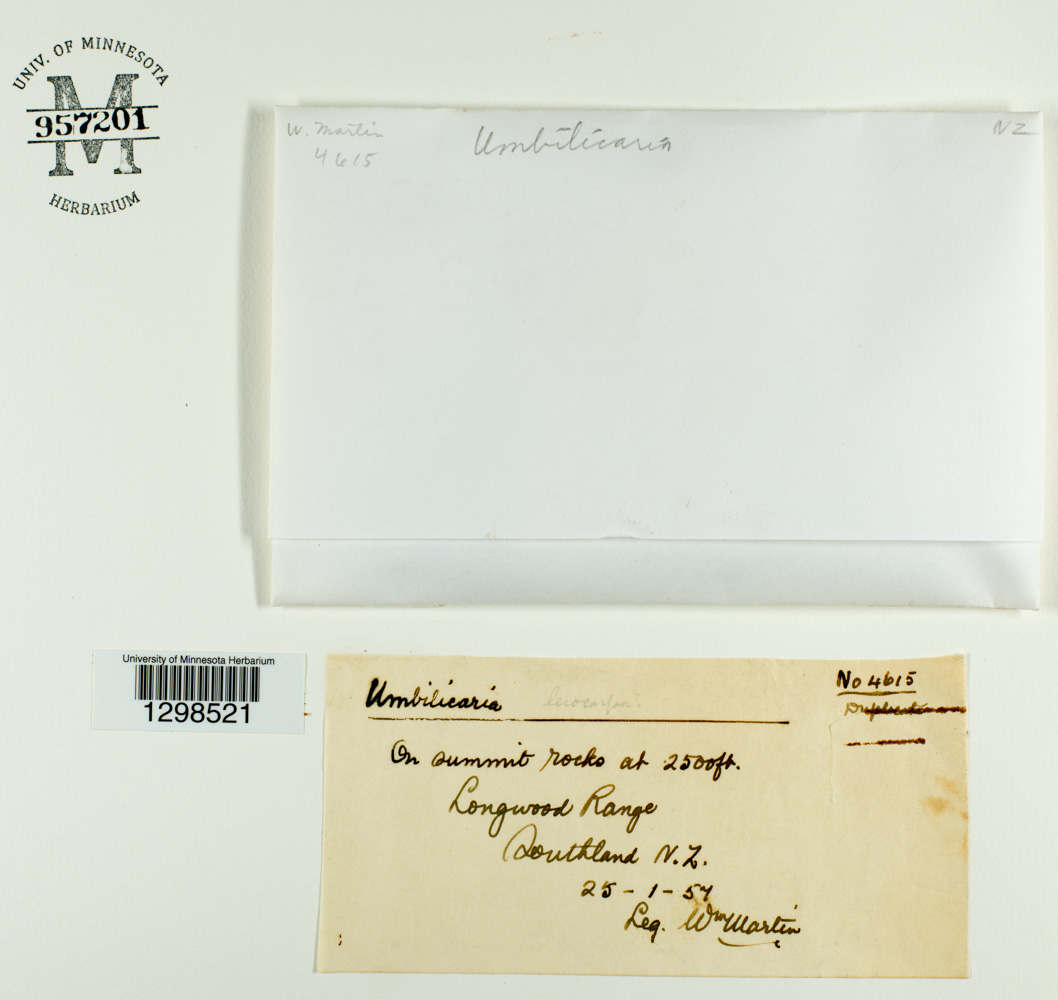 UNIV. OF MINNESOTA
M
957201
HERBARIUM
W. Martin
4615
Umbilicaria
NZ
University of Minnesota Herbarium
1298521
Umbilicaria
No 4615
Duplicate
On summit rocks at 2500ft.
Longwood Range
Southland N.Z.
25-1-57
Leg. Wm Martin